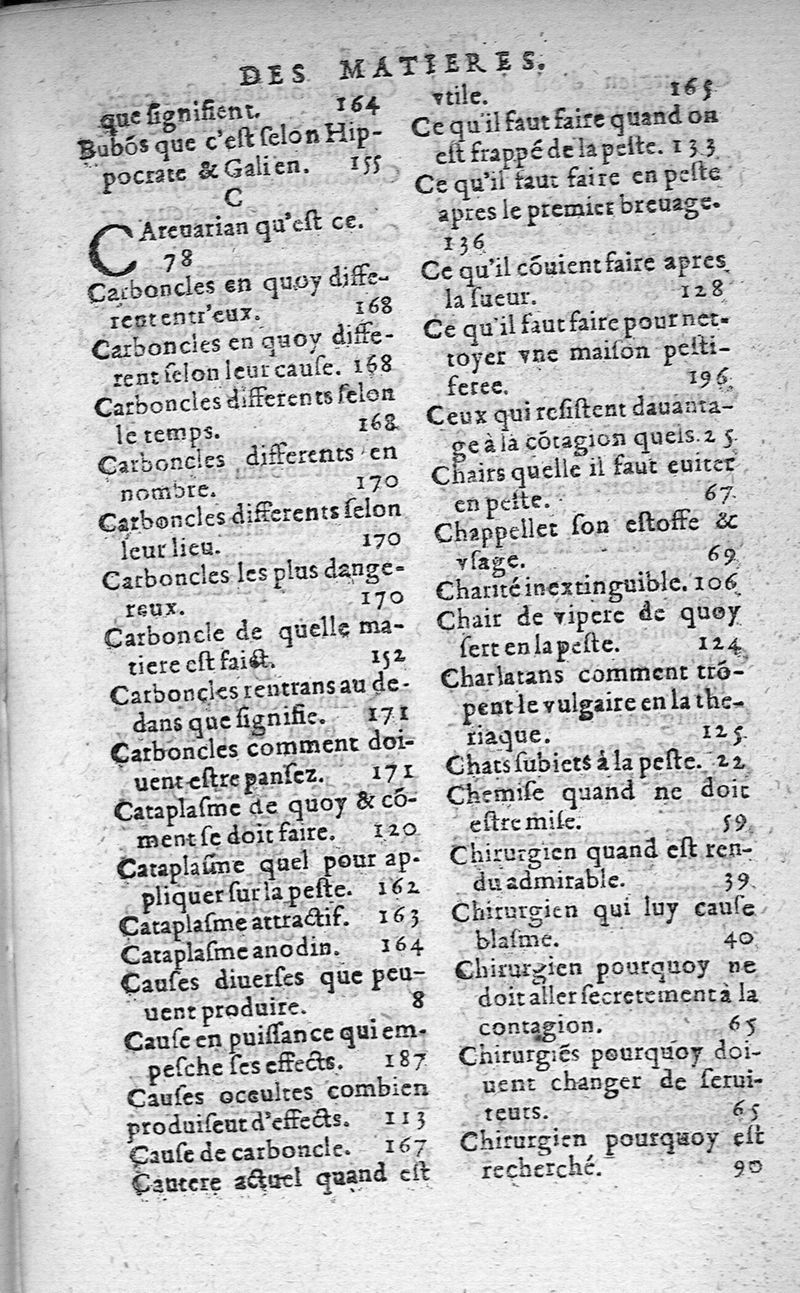 DES MATIERES.
que ſignifient. 164
Bubõs que c'eſt ſelon Hip-
pocrate & Galien. 155
C
CAreuarian qu'eſt ce.
78
Carboncles en quoy diffe-
rent entr'eux. 168
Carboncles en quoy diffe-
rent ſelon leur cauſe. 168
Carboncles differents ſelon
le temps. 168
Carboncles differents en
nombre. 170
Carboncles differents ſelon
leur lieu. 170
Carboncles les plus dange-
reux. 170
Carboncle de quelle ma-
tiere eſt faict. 152
Carboncles rentrans au de-
dans que ſignifie. 171
Carboncles comment doi-
uent eſtre panſez. 171
Cataplaſme de quoy & cõ-
ment ſe doit faire. 120
Cataplaſme quel pour ap-
pliquer ſur la peſte. 162
Cataplaſme attractif. 163
Cataplaſme anodin. 164
Cauſes diuerſes que peu-
uent produire. 8
Cauſe en puiſſance qui em-
peſche ſes effects. 187
Cauſes occultes combien
produiſeut d'effects. 113
Cauſe de carboncle. 167
Cautere actuel quand eſt
vtile. 165
Ce qu'il faut faire quand on
eſt frappé de la peſte. 133
Ce qu'il faut faire en peſte
apres le premier breuage.
136
Ce qu'il cõuient faire apres
la ſueur. 128
Ce qu'il faut faire pour net-
toyer vne maiſon peſti-
feree. 196
Ceux qui reſiſtent dauanta-
ge à la cõtagion quels. 25
Chairs quelle il faut euiter
en peſte. 67
Chappellet ſon eſtoffe &
vſage. 69
Charité inextinguible. 106
Chair de vipere de quoy
ſert en la peſte. 124
Charlatans comment trõ-
pent le vulgaire en la the-
riaque. 125
Chats ſubiets à la peſte. 22
Chemiſe quand ne doit
eſtre miſe. 59
Chirurgien quand eſt ren-
du admirable. 39
Chirurgien qui luy cauſe
blaſme. 40
Chirurgien pourquoy ne
doit aller ſecretement à la
contagion. 65
Chirurgiẽs pourquoy doi-
uent changer de ſerui-
teurs. 65
Chirurgien pourquoy eſt
recherché. 90